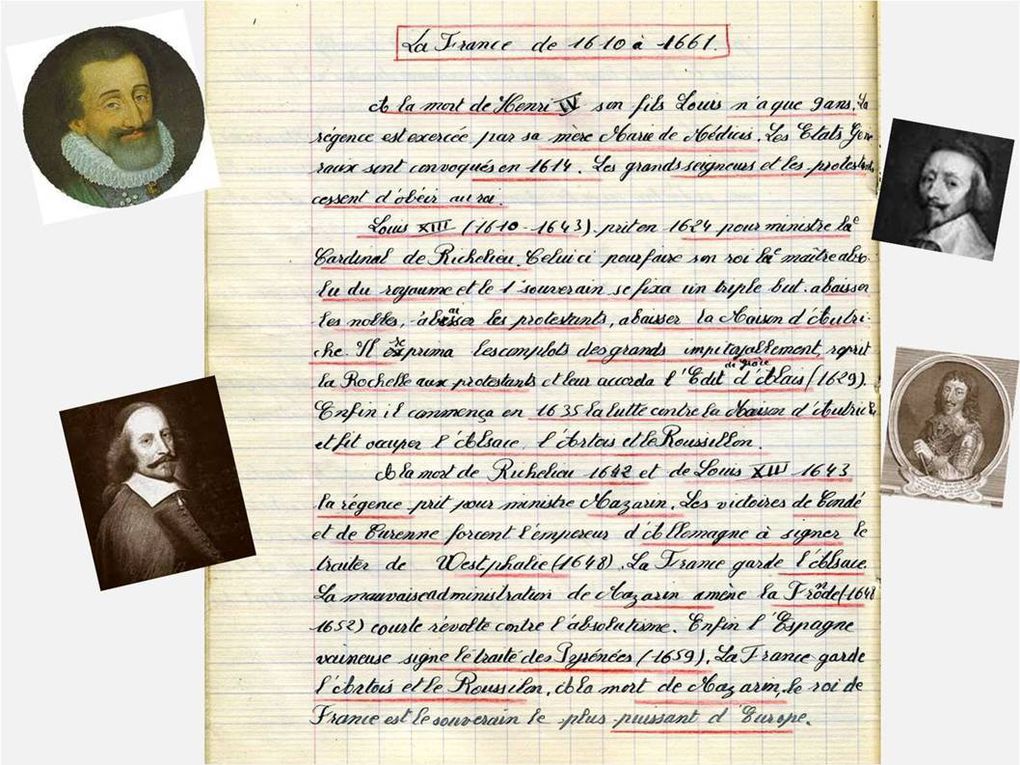 La France de 1610 à 1661.
A la mort de Henri IV son fils Louis n'a que 9 ans, la
régence est exercée par sa mère Marie de Médicis. Les Etats Gén
raux sont convoqués en 1614. Les grands seigneurs et les protestants
cessent d'obéir au roi.
Louis XIII (1610-1643) prit en 1624 pour ministre le
Cardinal de Richelieu. Celui ci pour faire son roi le maître abso-
lu du royaume et le 1er souverain se fixa un triple but. abaisser
les nobles, abaisser les protestants, abaisser la Maison d'Autri-
che. Il réprima les complots des grands impitoyablement, reprit
la Rochelle aux protestants et leur accorda l'Edit de grâce d'Alais (1629).
Enfin il commença en 1635 la lutte contre la Maison d'Autriche
et fit occuper l'Alsace, l'Artois et le Roussillon.
A la mort de Richelieu 1642 et de Louis XIII 1643
la régence prit pour ministre Mazarin. Les victoires de Condé
et de Turenne forcent l'empereur d'Allemagne à signer le
traiter de Westphalie (1648). La France garde l'Alsace.
La mauvaise administration de Mazarin amène la Fronde (1648
1652) courte révolte contre l'absolutisme. Enfin l'Espagne
vaincuse signe le traité des Pyrénées (1659). La France garde
l'Artois et le Roussilon. A la mort de Mazarin, le roi de
France est le souverain le plus puissant d'Europe.